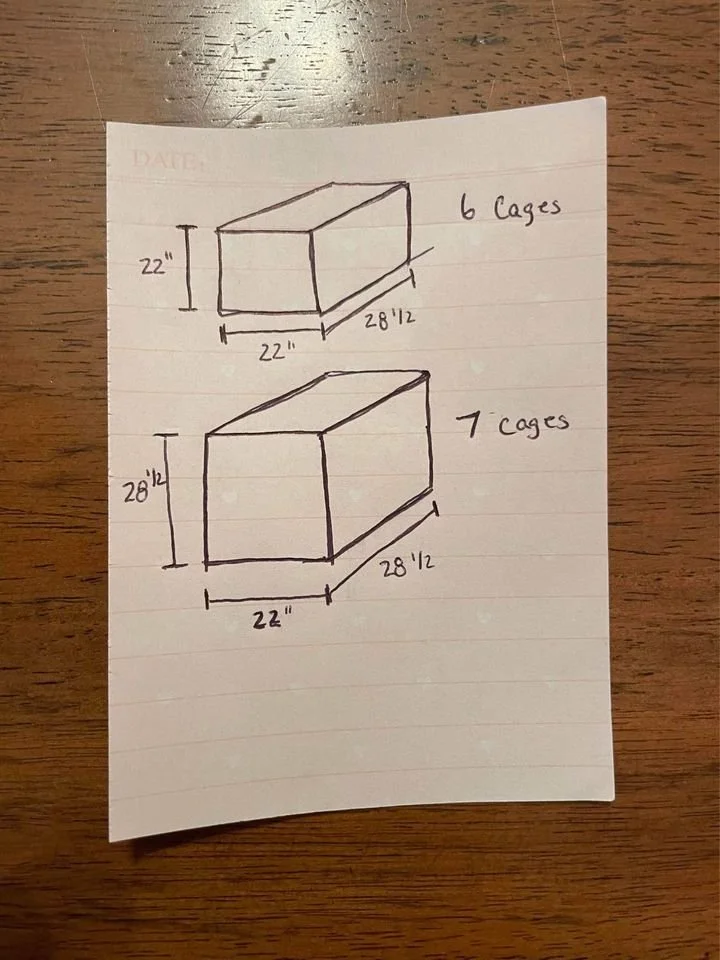 DATE:
6 Cages
22"
28 1/2
22"
7 cages
28 1/2
28 1/2
22"